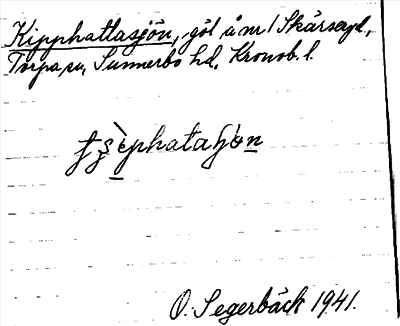 Kipphattasjön, göl å nr 1 Skärsagd,
Torpa sn, Sunnerbo hd, Kronob. l.
O. Segerbäck 1941.